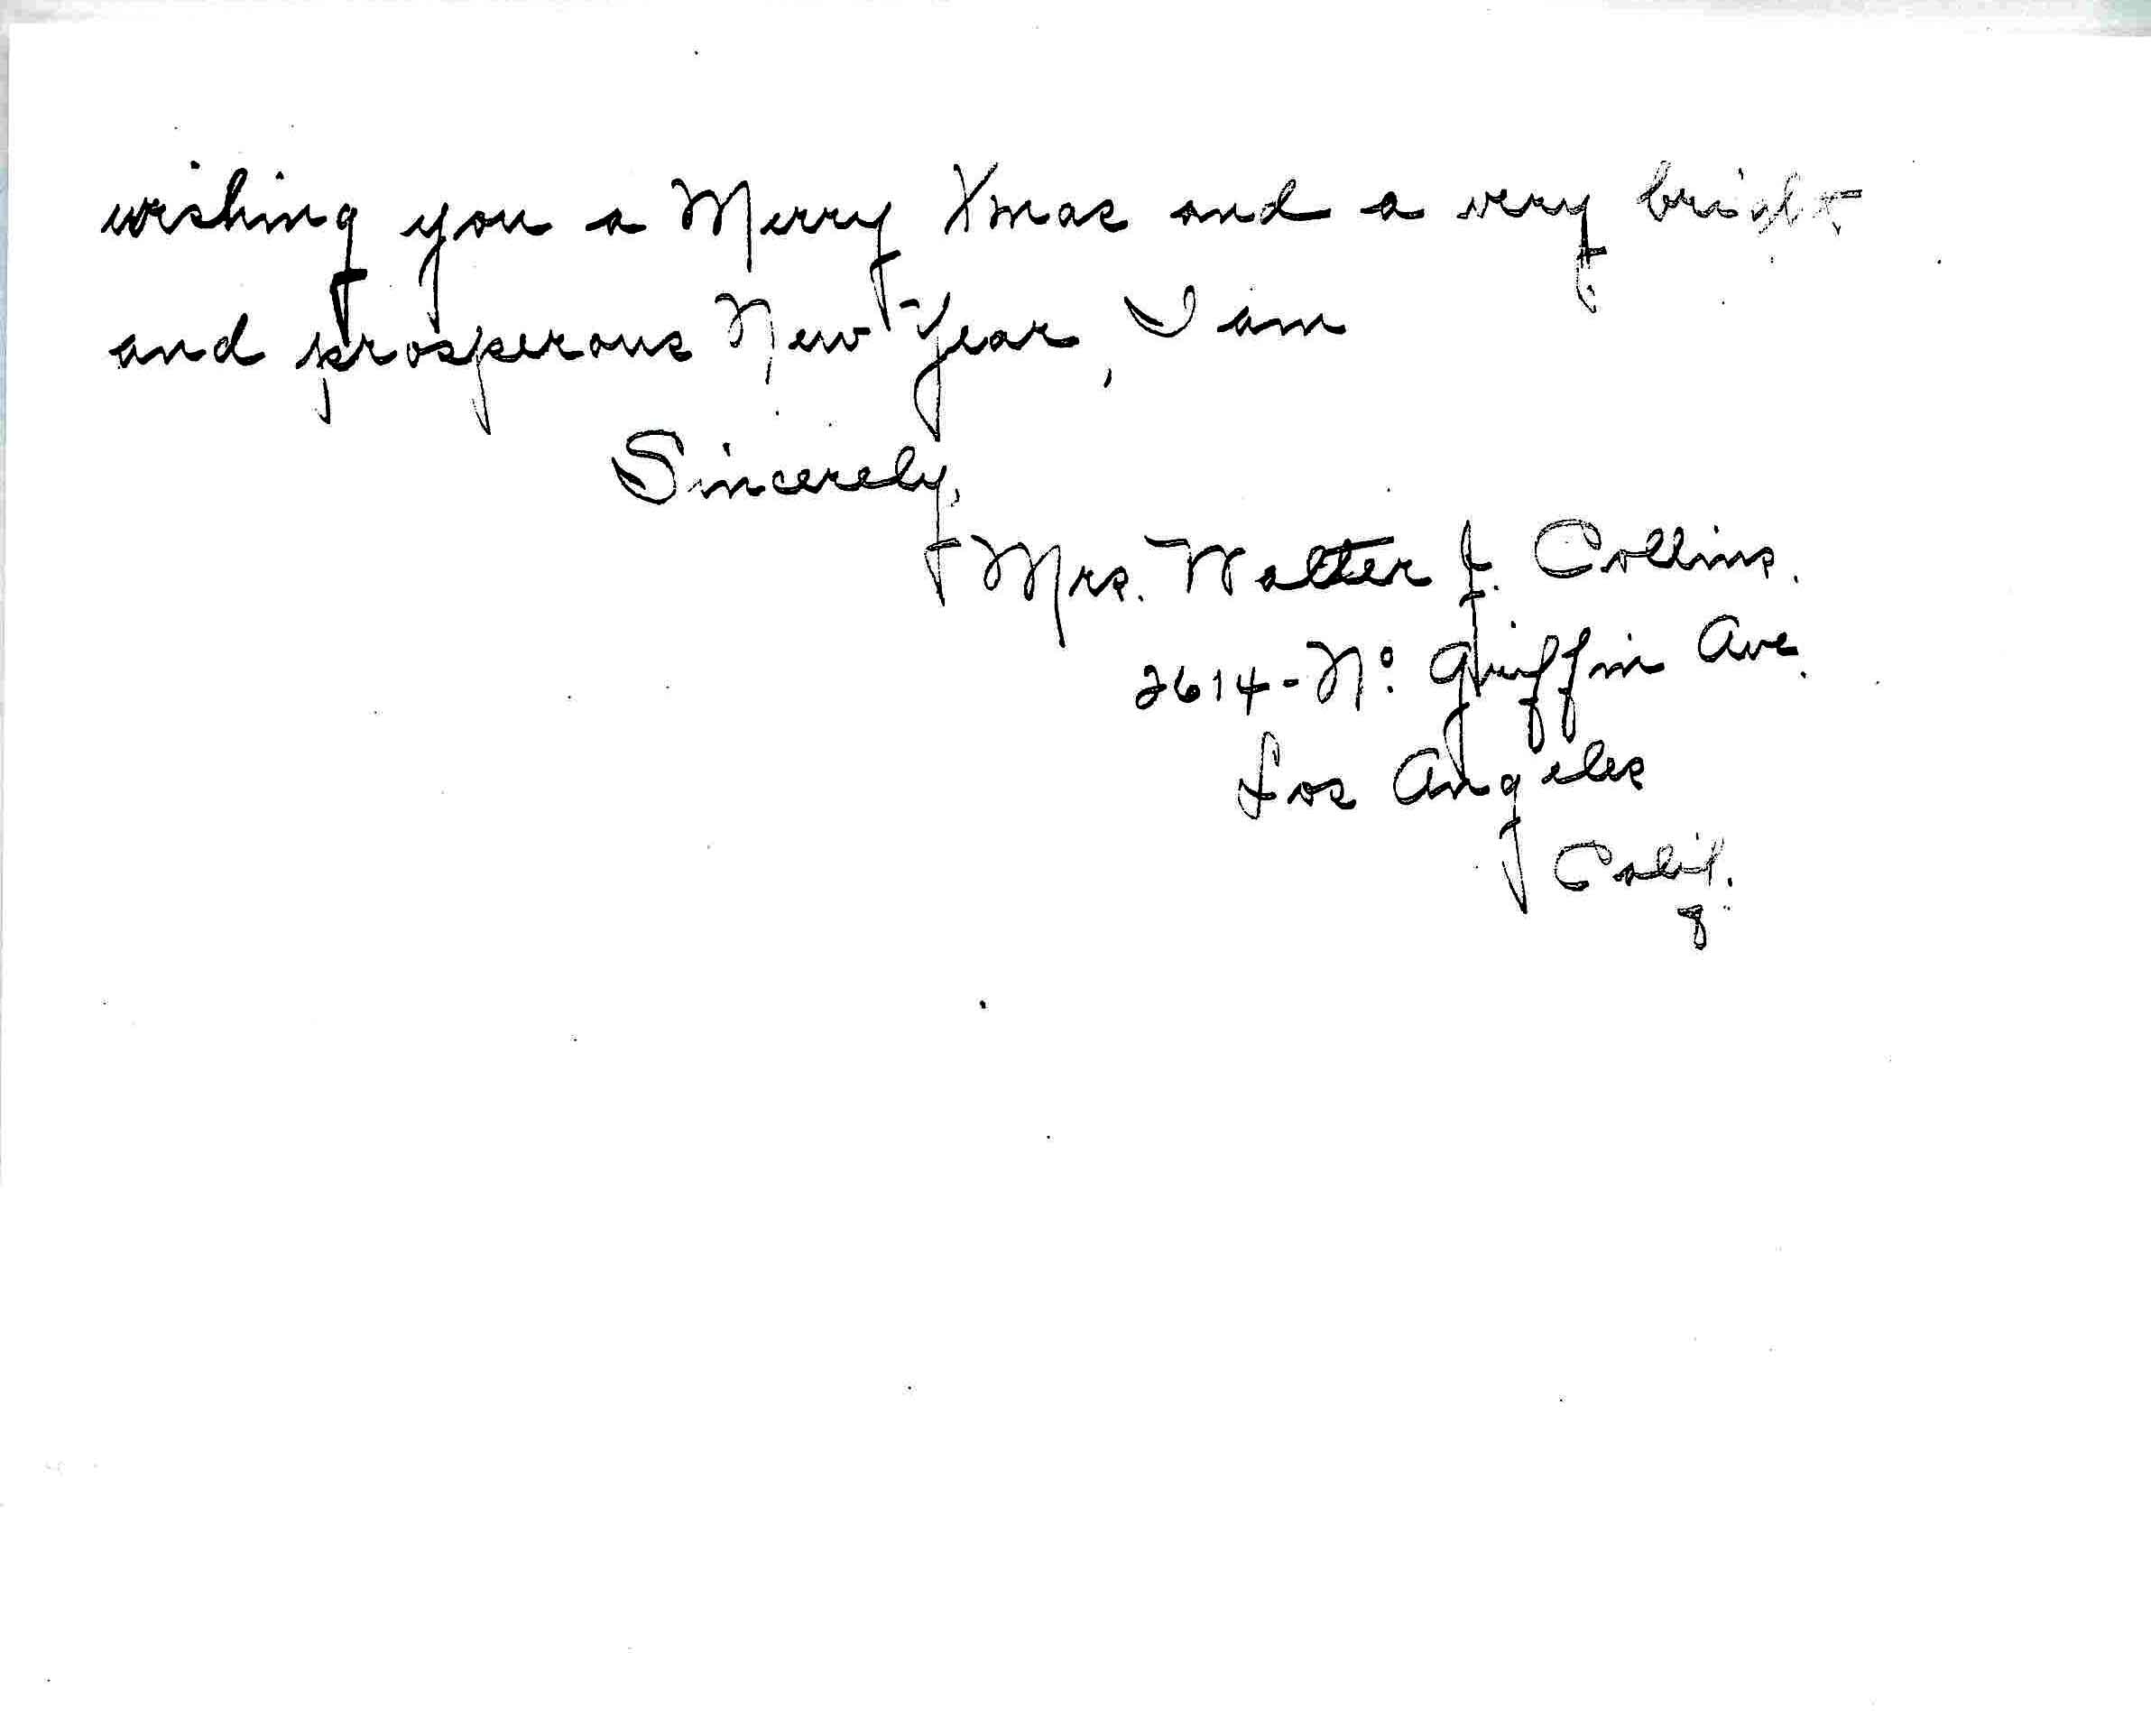 wishing you a Merry Xmas and a very bright
and prosperous New Year, I am
Sincerely,
Mrs. Walter J. Collins.
2614 - No. Griffin Ave.
Los Angeles
Calif.